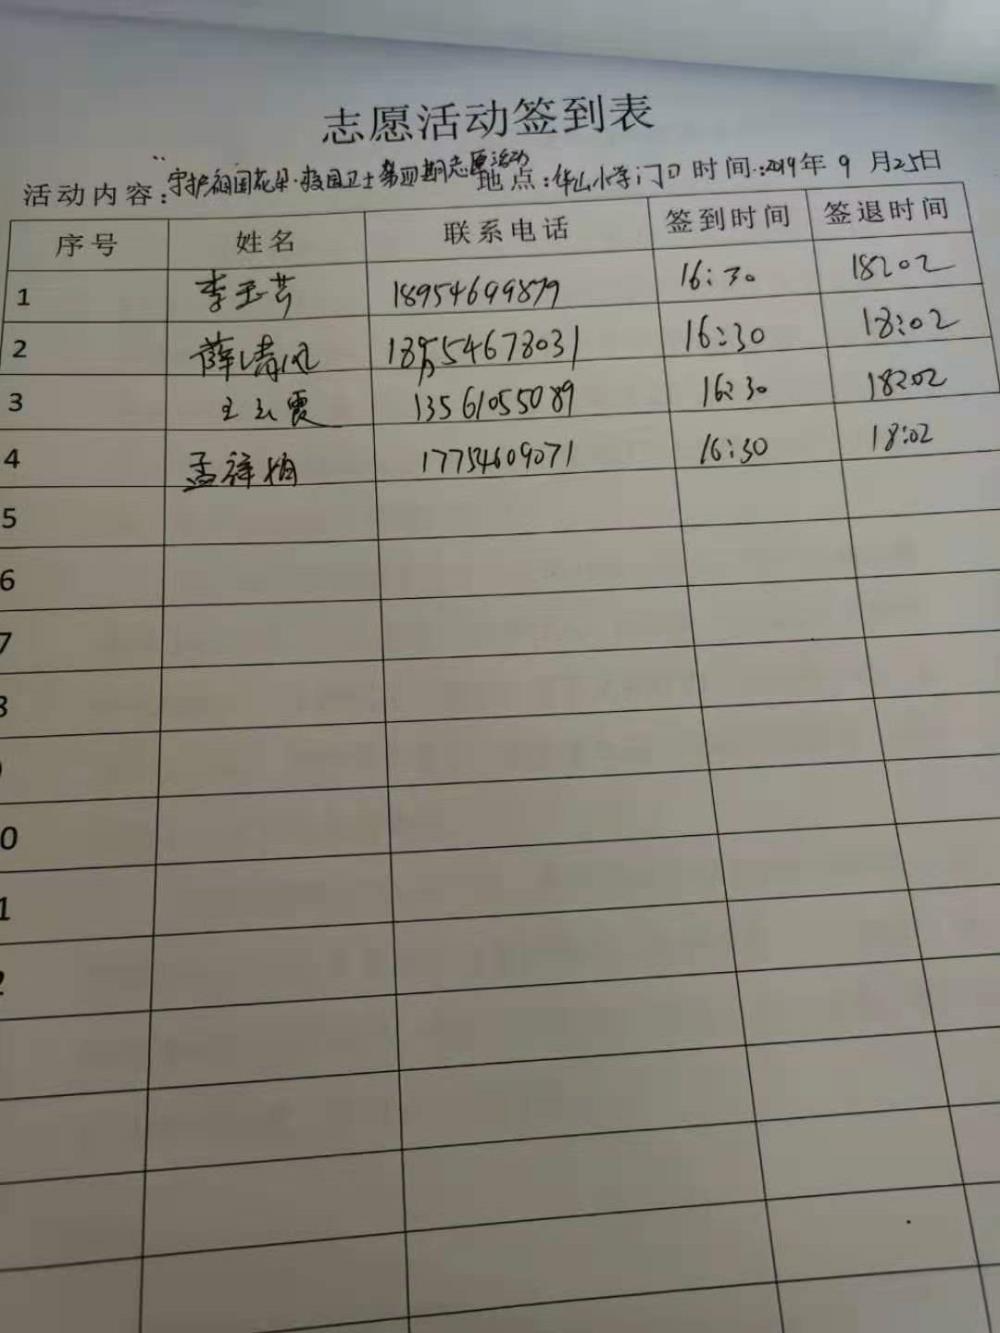 志愿活动签到表
活动内容:"守护祖国花朵·校园卫士第四期志愿活动 地点:华山小学门口 时间:2019年9月25日
序号 姓名 联系电话 签到时间 签退时间
1 李玉芳 18954699879 16:30 18:02
2 薛清风 554678031 16:30 18:02
3 王云霞 13561055089 16:30 18:02
4 孟祥柏 17754609071 16:30 18:02
5
6
7
8
0
1
2